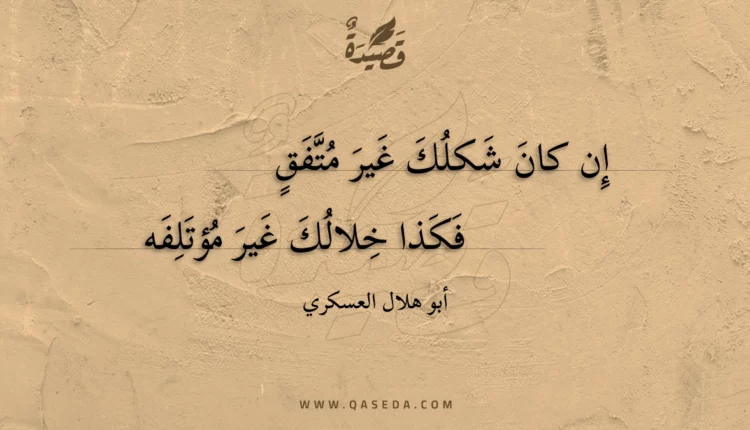 قَصِيدَةٌ
إِن كانَ شَكلُكَ غَيرَ مُتَّفَقٍ
فَكَذا خِلالُكَ غَيرَ مُؤتَلِفَه
أبو هلال العسكري
WWW.QASEDA.COM